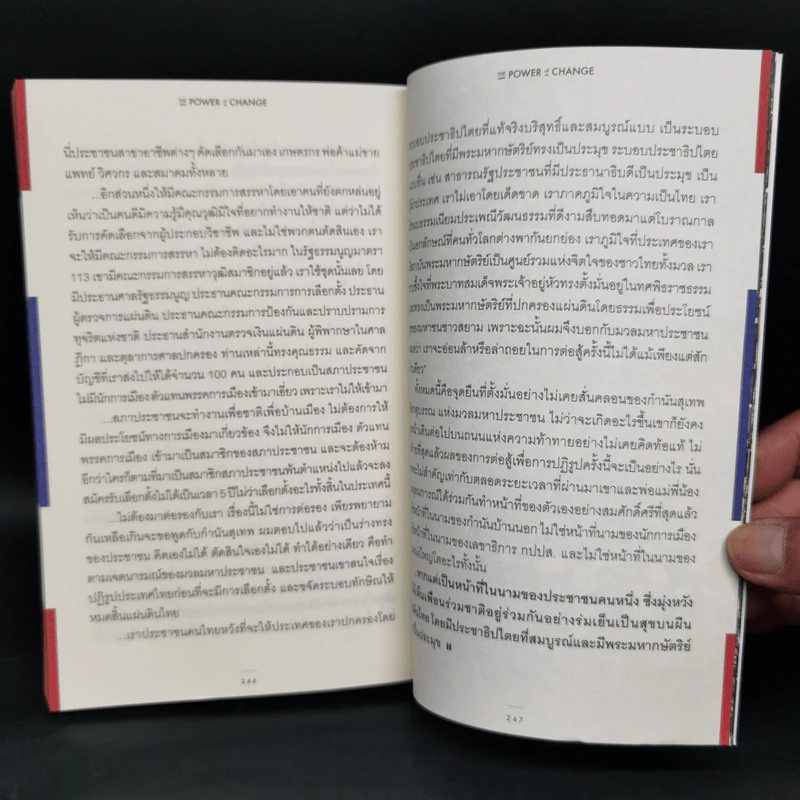 THE POWER of CHANGE
นี่ประชาชนสาขาอาชีพต่างๆ คัดเลือกกันมาเอง เกษตรกร พ่อค้าแม่ขาย
แพทย์ วิศวกร และสมาคมทั้งหลาย
...อีกส่วนหนึ่งให้มีคณะกรรมการสรรหาโดยเอาคนที่ยังตกหล่นอยู่
เห็นว่าเป็นคนดีมีความรู้มีคุณวุฒิมีใจที่อยากทำงานให้ชาติ แต่ว่าไม่ได้
รับการคัดเลือกจากผู้ประกอบวิชาชีพ และไม่ใช่พวกตนตัดสินเอง เรา
จะให้มีคณะกรรมการสรรหา ไม่ต้องคิดอะไรมาก ในรัฐธรรมนูญมาตรา
113 เขามีคณะกรรมการสรรหาวุฒิสมาชิกอยู่แล้ว เราใช้ชุดนั้นเลย โดย
มีประธานศาลรัฐธรรมนูญ ประธานคณะกรรมการการเลือกตั้ง ประธาน
ผู้ตรวจการแผ่นดิน ประธานคณะกรรมการป้องกันและปราบปรามการ
ทุจริตแห่งชาติ ประธานสำนักงานตรวจเงินแผ่นดิน ผู้พิพากษาในศาล
ฎีกา และตุลาการศาลปกครอง ท่านเหล่านี้ทรงคุณธรรม และคัดจาก
บัญชีที่เราส่งไปให้ได้จำนวน 100 คน และประกอบเป็นสภาประชาชน
ไม่มีนักการเมือง ตัวแทนพรรคการเมืองเข้ามาเอี่ยว เพราะเราไม่ให้เข้ามา
...สภาประชาชนจะทำงานเพื่อชาติเพื่อบ้านเมือง ไม่ต้องการให้
มีผลประโยชน์ทางการเมืองมาเกี่ยวข้อง จึงไม่ให้นักการเมือง ตัวแทน
พรรคการเมือง เข้ามาเป็นสมาชิกของสภาประชาชน และจะต้องห้าม
อีกว่าใครก็ตามที่มาเป็นสมาชิกสภาประชาชนพ้นตำแหน่งไปแล้วจะลง
สมัครรับเลือกตั้งไม่ได้เป็นเวลา 5 ปีไม่ว่าเลือกตั้งอะไรทั้งสิ้นในประเทศนี้
...ไม่ต้องมาต่อรองกับเรา เรื่องนี้ไม่ใช่การต่อรอง เพียรพยายาม
กันเหลือเกินจะขอพูดกับกำนันสุเทพ ผมตอบไปแล้วว่าเป็นร่างทรง
ของประชาชน คิดเองไม่ได้ ตัดสินใจเองไม่ได้ ทำได้อย่างเดียว คือทำ
ตามเจตนารมณ์ของมวลมหาประชาชน และประชาชนเขาสนใจเรื่อง
ปฏิรูปประเทศไทยก่อนที่จะมีการเลือกตั้ง และขจัดระบอบทักษิณให้
หมดสิ้นแผ่นดินไทย
...เราประชาชนคนไทยหวังที่จะให้ประเทศของเราปกครองโดย
246
THE POWER of CHANGE
ระบอบประชาธิปไตยที่แท้จริงบริสุทธิ์และสมบูรณ์แบบ เป็นระบอบ
ประชาธิปไตยที่มีพระมหากษัตริย์ทรงเป็นประมุข ระบอบประชาธิปไตย
แบบอื่น เช่น สาธารณรัฐประชาชนที่มีประธานาธิบดีเป็นประมุข เป็น
ประเทศ เราไม่เอาโดยเด็ดขาด เราภาคภูมิใจในความเป็นไทย เรา
ขนบธรรมเนียมประเพณีวัฒนธรรมที่ดีงามสืบทอดมาแต่โบราณกาล
เอกลักษณ์ที่คนทั่วโลกต่างพากันยกย่อง เราภูมิใจที่ประเทศของเรา
สถาบันพระมหากษัตริย์เป็นศูนย์รวมแห่งจิตใจของชาวไทยทั้งมวล เรา
ซึ้งใจที่พระบาทสมเด็จพระเจ้าอยู่หัวทรงตั้งมั่นอยู่ในทศพิธราชธรรม
ทรงเป็นพระมหากษัตริย์ที่ปกครองแผ่นดินโดยธรรมเพื่อประโยชน์
ของมหาชนชาวสยาม เพราะฉะนั้นผมจึงบอกกับมวลมหาประชาชน
ว่า เราจะอ่อนล้าหรือล่าถอยในการต่อสู้ครั้งนี้ไม่ได้แม้เพียงแต่สัก
เดียว"
ทั้งหมดนี้คือจุดยืนที่ตั้งมั่นอย่างไม่เคยสั่นคลอนของกำนันสุเทพ
แห่งมวลมหาประชาชน ไม่ว่าจะเกิดอะไรขึ้นเขาก็ยังคง
เดินต่อไปบนถนนแห่งความท้าทายอย่างไม่เคยคิดท้อแท้ ไม่
ที่สุดแล้วผลของการต่อสู้เพื่อการปฏิรูปครั้งนี้จะเป็นอย่างไร นั่น
ไม่สำคัญเท่ากับตลอดระยะเวลาที่ผ่านมาเขาและพ่อแม่พี่น้อง
อุดมการณ์ได้ร่วมกันทำหน้าที่ของตัวเองอย่างสมศักดิ์ศรีที่สุดแล้ว
หน้าที่ในนามของกำนันบ้านนอก ไม่ใช่หน้าที่นามของนักการเมือง
หน้าที่ในนามของเลขาธิการ กปปส. และไม่ใช่หน้าที่ในนามของ
ใหญ่โตอะไรทั้งนั้น
...หากแต่เป็นหน้าที่ในนามของประชาชนคนหนึ่ง ซึ่งมุ่งหวัง
เห็นเพื่อนร่วมชาติอยู่ร่วมกันอย่างร่มเย็นเป็นสุขบนผืน
ไทย โดยมีประชาธิปไตยที่สมบูรณ์และมีพระมหากษัตริย์
เป็นประมุข
247